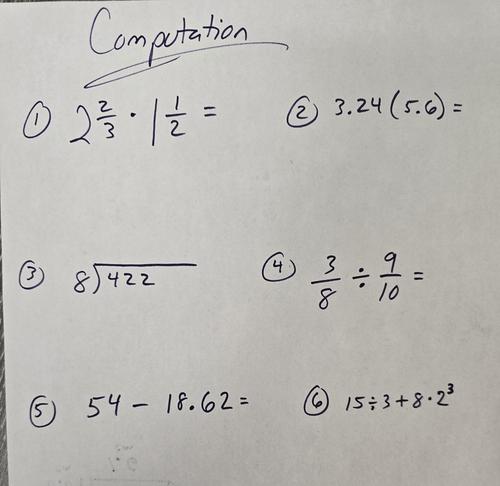 Computation
① 2 2/3 · 1 1/2 =
② 3.24(5.6) =
③ 8)422
④ 3/8 ÷ 9/10 =
⑤ 54 - 18.62 =
⑥ 15÷3+8·2³